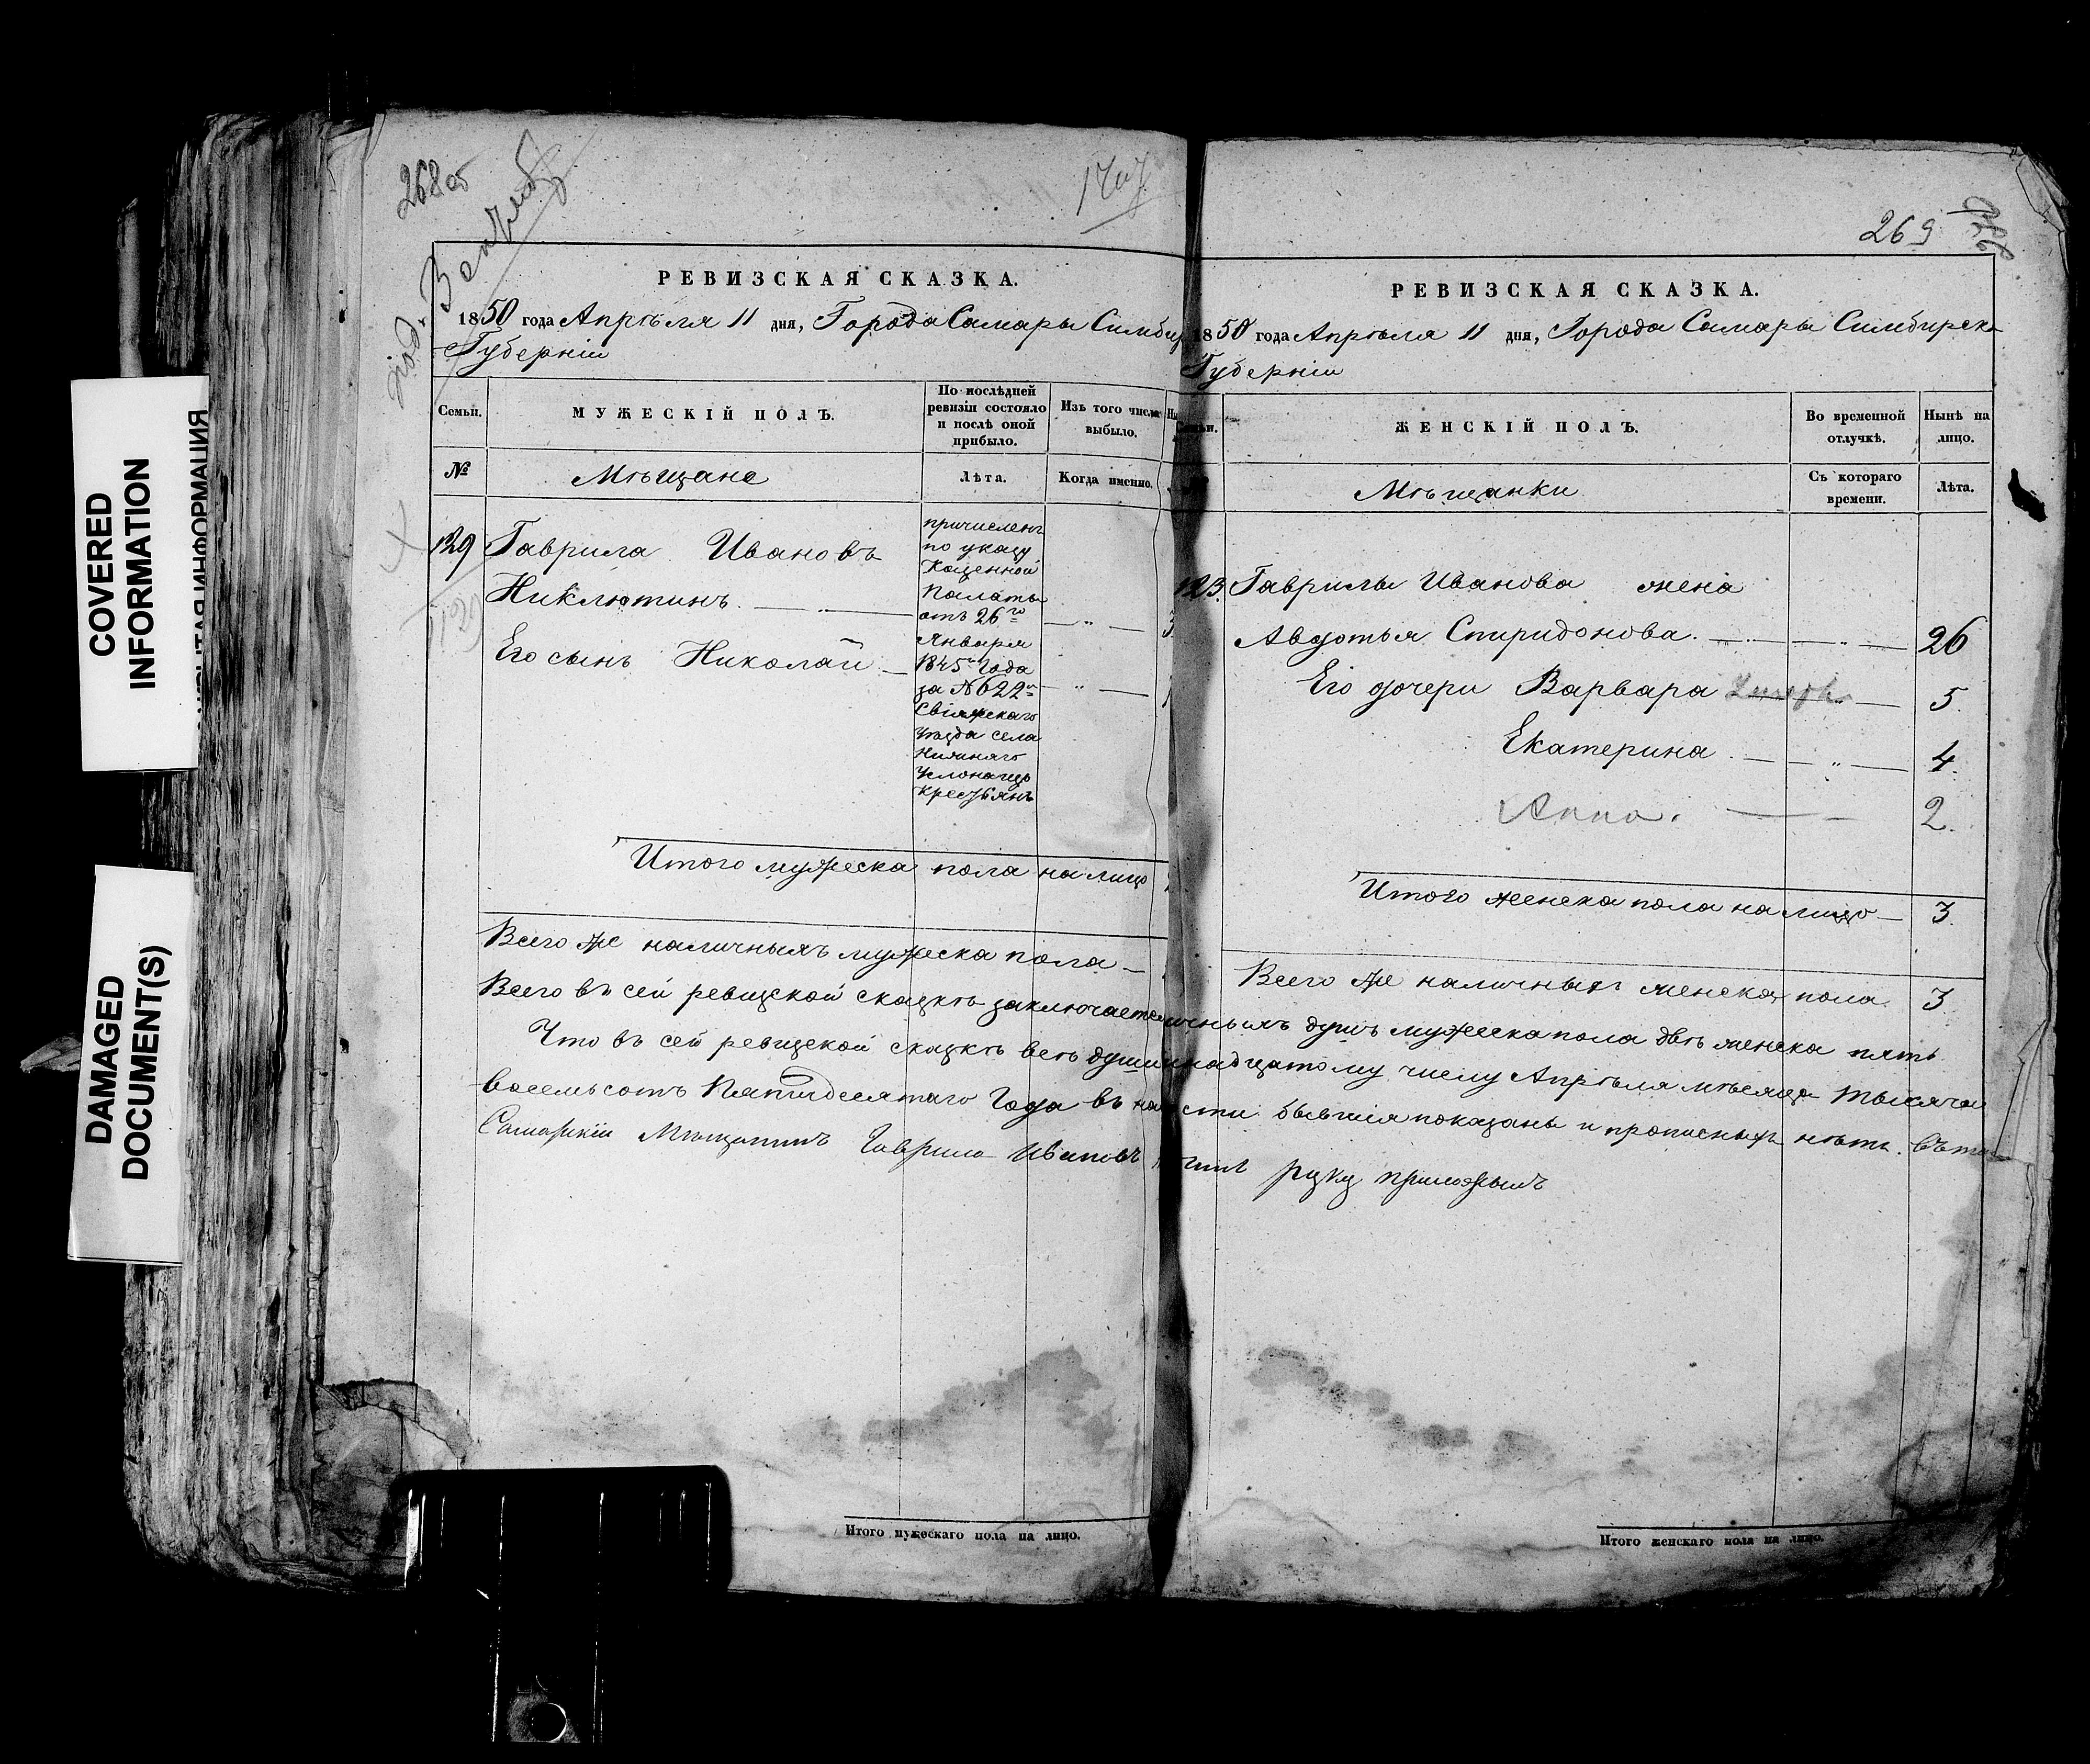 COVERED
INFORMATION
DAMAGED
DOCUMENT(S)
268об
269
РЕВИЗСКАЯ СКАЗКА.
1850 года Апрѣля 11 дня, Города Самары Симби
Губерніи
Семьи.
МУЖЕСКІЙ ПОЛЪ.
По послѣдней ревизіи состояло и послѣ оной прибыло.
Изъ того числа выбыло.
№
Мѣщане
Лѣта.
Когда именно.
129
Гаврила Ивановъ
Никлютинъ
Его сынъ Николай
причисленъ
по указу
Казенной
Палаты
отъ 26го
Января
1845го Года
за № 622м
Свіяжскаго
Уѣзда села
Нижняго
Услона изъ
крестьянъ
Итого мужеска пола на лицо
Всего же наличныхъ мужеска пола
РЕВИЗСКАЯ СКАЗКА.
1850 года Апрѣля 11 дня, Города Самары Симбирск
Губерніи
Семьи.
ЖЕНСКІЙ ПОЛЪ.
Во временной отлучкѣ.
Нынѣ на лицо.
Мѣщанки
Съ котораго времени.
Лѣта.
123. Гаврилы Иванова жена
Авдотья Спиридонова. 26
Его дочери Варвара 5
Екатерина 4.
Анна. 2.
Итого женска пола на лицо 3
Всего же наличныхъ женска пола 3
Всего въ сей ревизской сказкѣ заключаетс личныхъ душъ мужеска пола двѣ женска пять
Что въ сей ревизской сказкѣ всѣ души надцатому числу Апрѣля мѣсяца тысяча
восемьсотъ Пятидесятаго Года въ на бывшія показаны и прописныхъ нѣтъ. въ
Самарскій Мѣщанинъ Гаврила Ивановъ руку приложилъ
Итого мужескаго пола на лицо.
Итого женскаго пола на лицо.